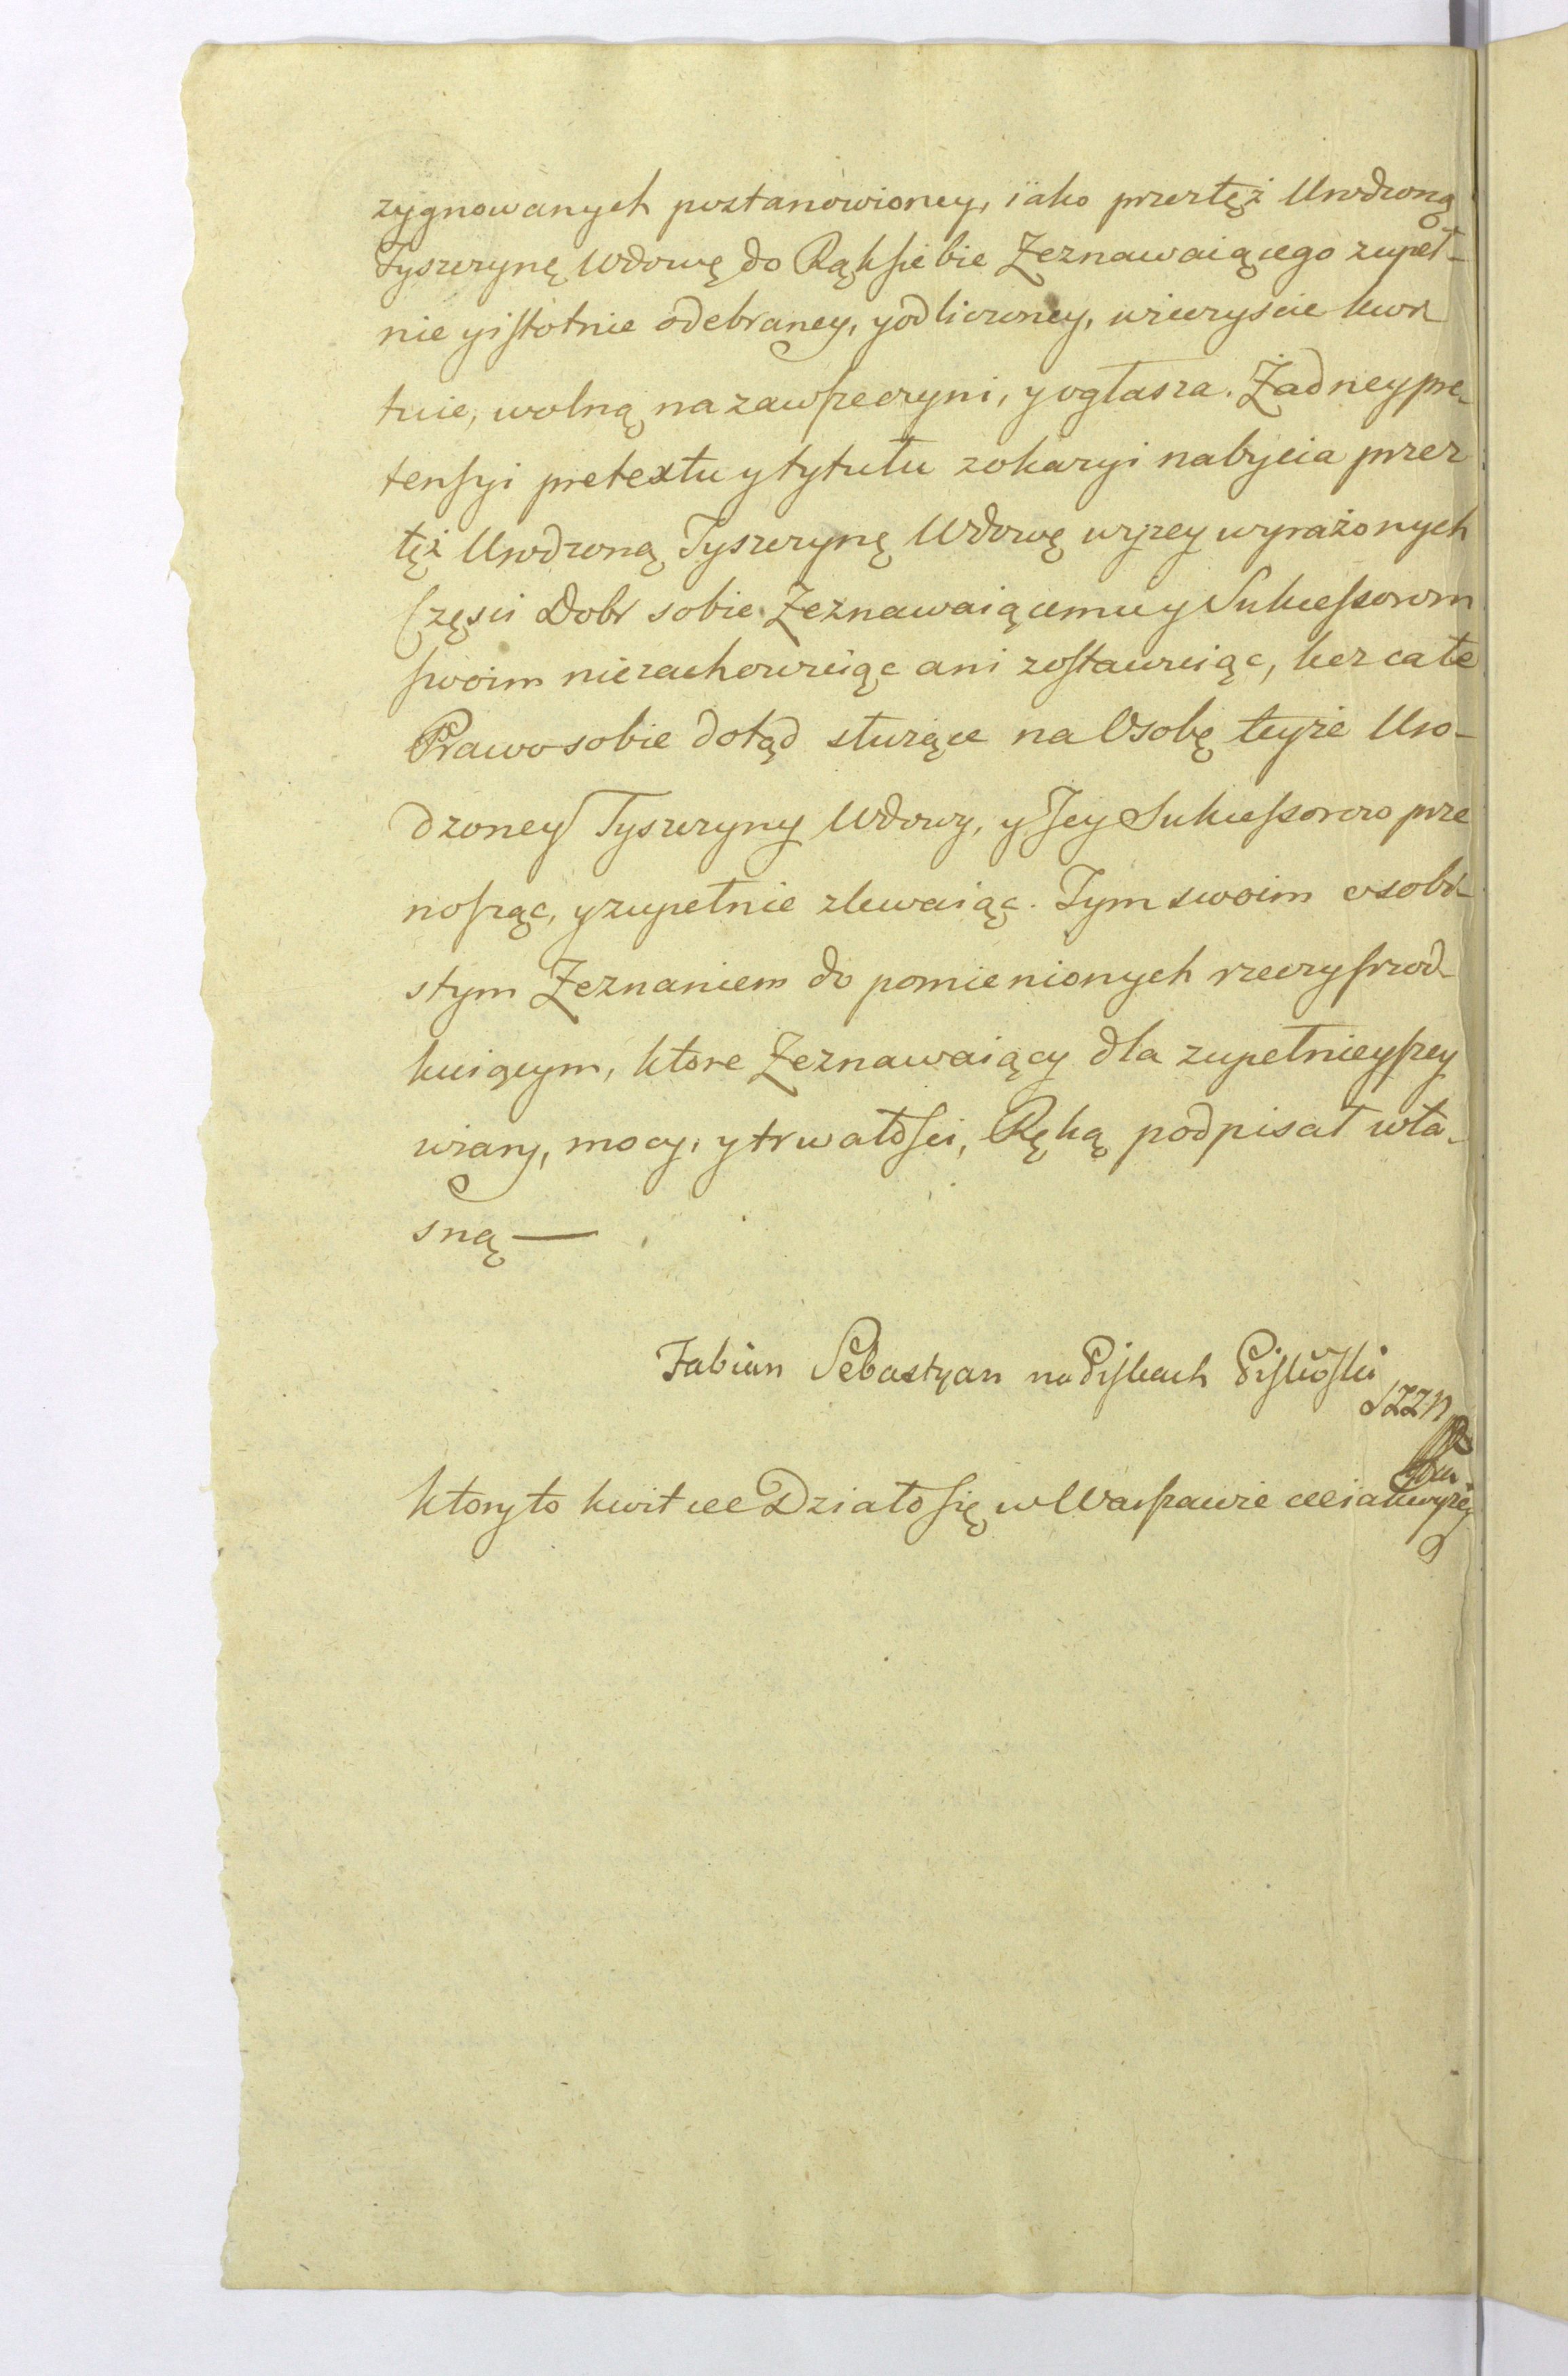 zygnowanych postanowioney, iako przeztęż Urodzoną
Tyszczynę Wdowę do Rąk siebie Zeznawaiącego zupeł-
nie y istotnie odebraney, y odliczoney, wieczyscie kwi
tuie, wolną na zawsze czyni, y ogłasza. Żadney pre-
tensyi pretextu y tytułu z okazyi nabycia przez
tęż Urodzoną Tyszczynę Wdowę wyżey wyrażonych
Części Dobr sobie Zeznawaiącemu y Sukcessorom
swoim niezachowuiąc ani zostawuiąc, lecz całe
Prawo sobie dotąd służące na Osobę teyże Uro-
dzoney Tyszczyny Wdowy, y Jey Sukcessorow prze
nosząc, y zupełnie zlewaiąc. Tym swoim osobi-
stym Zeznaniem do pomienionych rzeczy srzod-
kuiącym, ktore Zeznawaiący dla zupełnieyszey
wiary, mocy, y trwałości, Ręką podpisał wła-
sną —
Fabian Sebastyan na Piskach Piskorski
SZZN
ktory to kwit Działo się w Warszawie iak wyżey